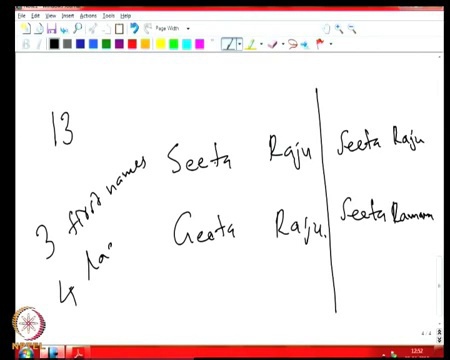 File Edit View Insert Actions Tools Help
Page Width
13
3 first names
4 la
Seeta Raju
Geeta Raju.
Seeta Raju
Seeta Ramana
12:52